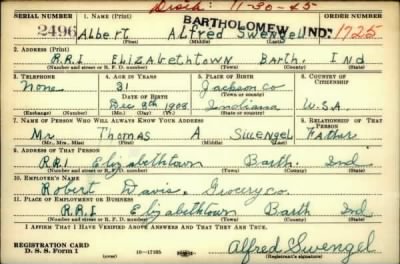 Disch: 11-30-45
SERIAL NUMBER 1. NAME (Print) ORDER NUMBER
BARTHOLOMEW IND:
2496 Albert Alfred Swengel 1725
(First) (Middle) (Last)
2. ADDRESS (Print)
R.R.1 ELIZABETHTOWN Barth. Ind
(Number and street or R. F. D. number) (Town) (County) (State)
3. TELEPHONE 4. AGE IN YEARS 5. PLACE OF BIRTH 6. COUNTRY OF CITIZENSHIP
None 31 Jackson Co
DATE OF BIRTH (Town or county)
Dec 8th 1908 Indiana U.S.A.
(Exchange) (Number) (Mo.) (Day) (Yr.) (State or country)
7. NAME OF PERSON WHO WILL ALWAYS KNOW YOUR ADDRESS 8. RELATIONSHIP OF THAT PERSON
Mr Thomas A Swengel Father
(Mr., Mrs., Miss) (First) (Middle) (Last)
9. ADDRESS OF THAT PERSON
R.R.1 Elizabethtown Barth. Ind
(Number and street or R. F. D. number) (Town) (County) (State)
10. EMPLOYER'S NAME
Robert Davis. Grocery co.
11. PLACE OF EMPLOYMENT OR BUSINESS
R.R.1 Elizabethtown Barth Ind
(Number and street or R. F. D. number) (Town) (County) (State)
I AFFIRM THAT I HAVE VERIFIED ABOVE ANSWERS AND THAT THEY ARE TRUE.
REGISTRATION CARD
D. S. S. Form 1 16-17105 Alfred Swengel
(Registrant's signature)